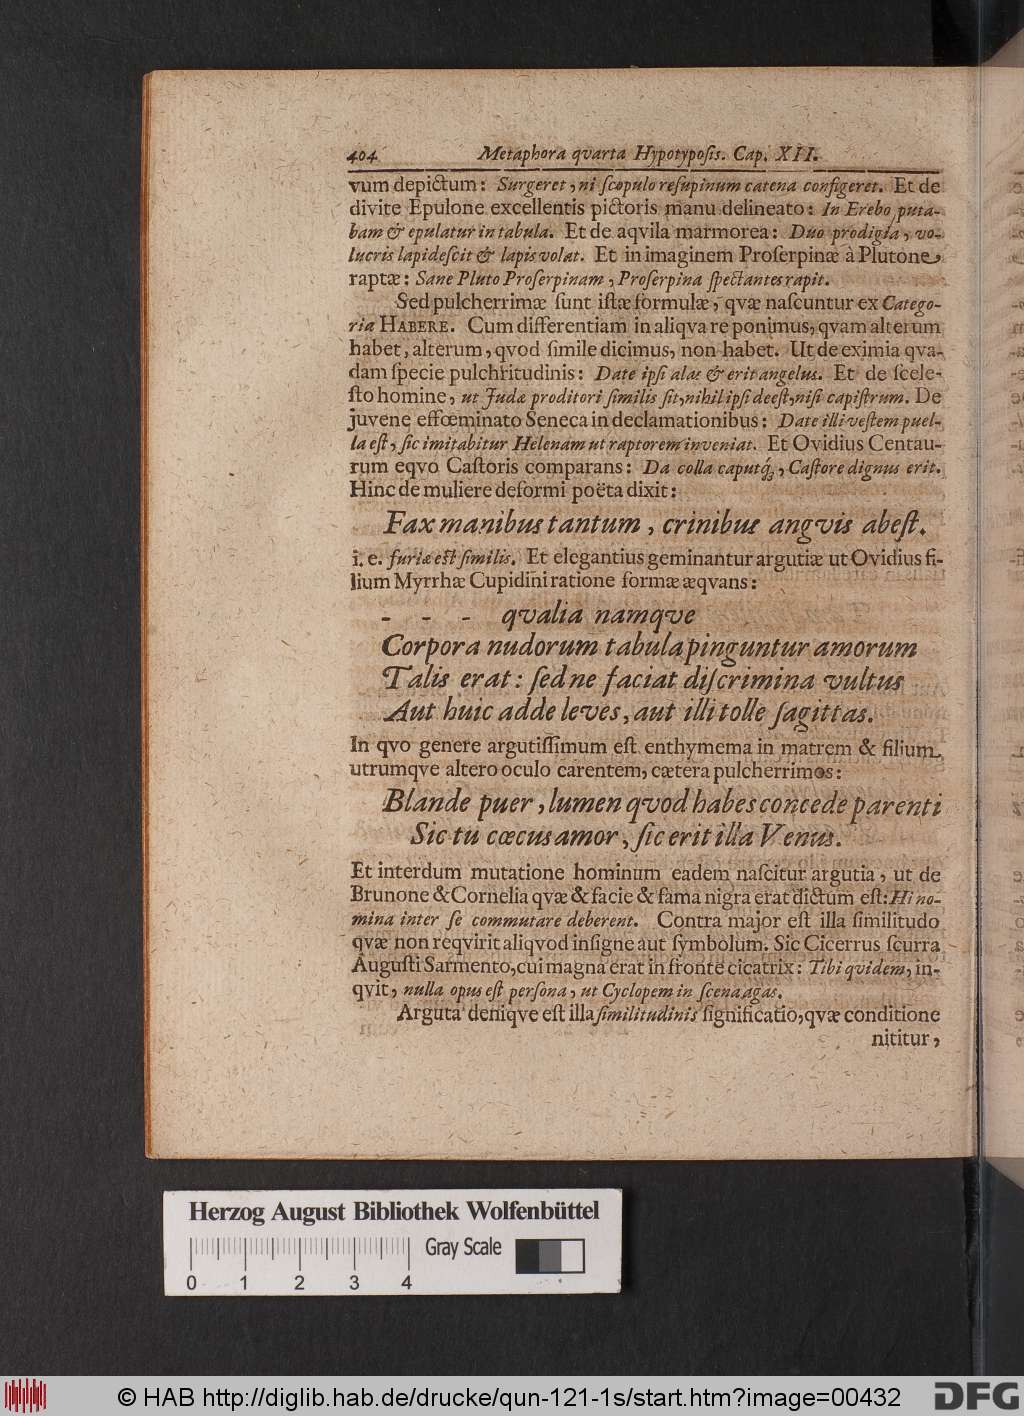 404 Metaphora qvarta Hypotyposis. Cap. XII.
vum depictum: Surgeret, ni ſcopulo reſupinum catena configeret. Et de
divite Epulone excellentis pictoris manu delineato: In Erebo puta-
bam & epulatur in tabula. Et de aqvila marmorea: Duo prodigia, vo-
lucris lapideſcit & lapis volat. Et in imaginem Proſerpinæ à Plutone
raptæ: Sane Pluto Proſerpinam, Proſerpina ſpectantes rapit.
Sed pulcherrimæ ſunt iſtæ formulæ, qvæ naſcuntur ex Catego-
ria HABERE. Cum differentiam in aliqva re ponimus, qvam alterum
habet, alterum, qvod ſimile dicimus, non habet. Ut de eximia qva-
dam ſpecie pulchritudinis: Date ipſi alas & erit angelus. Et de ſcele-
ſto homine, ut Judæ proditori ſimilis ſit, nihil ipſi deeſt, niſi capiſtrum. De
juvene effœminato Seneca in declamationibus: Date illi veſtem puel-
la eſt, ſic imitabitur Helenam ut raptorem inveniat. Et Ovidius Centau-
rum eqvo Caſtoris comparans: Da colla caputq́;, Caſtore dignus erit.
Hinc de muliere deformi poëta dixit:
Fax manibus tantum, crinibus angvis abeſt.
i. e. furiæ eſt ſimilis. Et elegantius geminantur argutiæ ut Ovidius fi-
lium Myrrhæ Cupidini ratione formæ æqvans:
- - - qvalia namqve
Corpora nudorum tabula pinguntur amorum
Talis erat: ſed ne faciat diſcrimina vultus
Aut huic adde leves, aut illi tolle ſagittas.
In qvo genere argutiſſimum eſt enthymema in matrem & filium
utrumqve altero oculo carentem, cætera pulcherrimos:
Blande puer, lumen qvod habes concede parenti
Sic tu cœcus amor, ſic erit illa Venus.
Et interdum mutatione hominum eadem naſcitur argutia, ut de
Brunone & Cornelia qvæ & facie & fama nigra erat dictum eſt: Hi no-
mina inter ſe commutare deberent. Contra major eſt illa ſimilitudo
qvæ non reqvirit aliqvod inſigne aut ſymbolum. Sic Cicerrus ſcurra
Auguſti Sarmento, cui magna erat in fronte cicatrix: Tibi qvidem, in-
qvit, nulla opus eſt perſona, ut Cyclopem in ſcena agas.
Arguta deniqve eſt illa ſimilitudinis ſignificatio, qvæ conditione
nititur,
Herzog August Bibliothek Wolfenbüttel
Gray Scale
0 1 2 3 4
© HAB http://diglib.hab.de/drucke/qun-121-1s/start.htm?image=00432 DFG